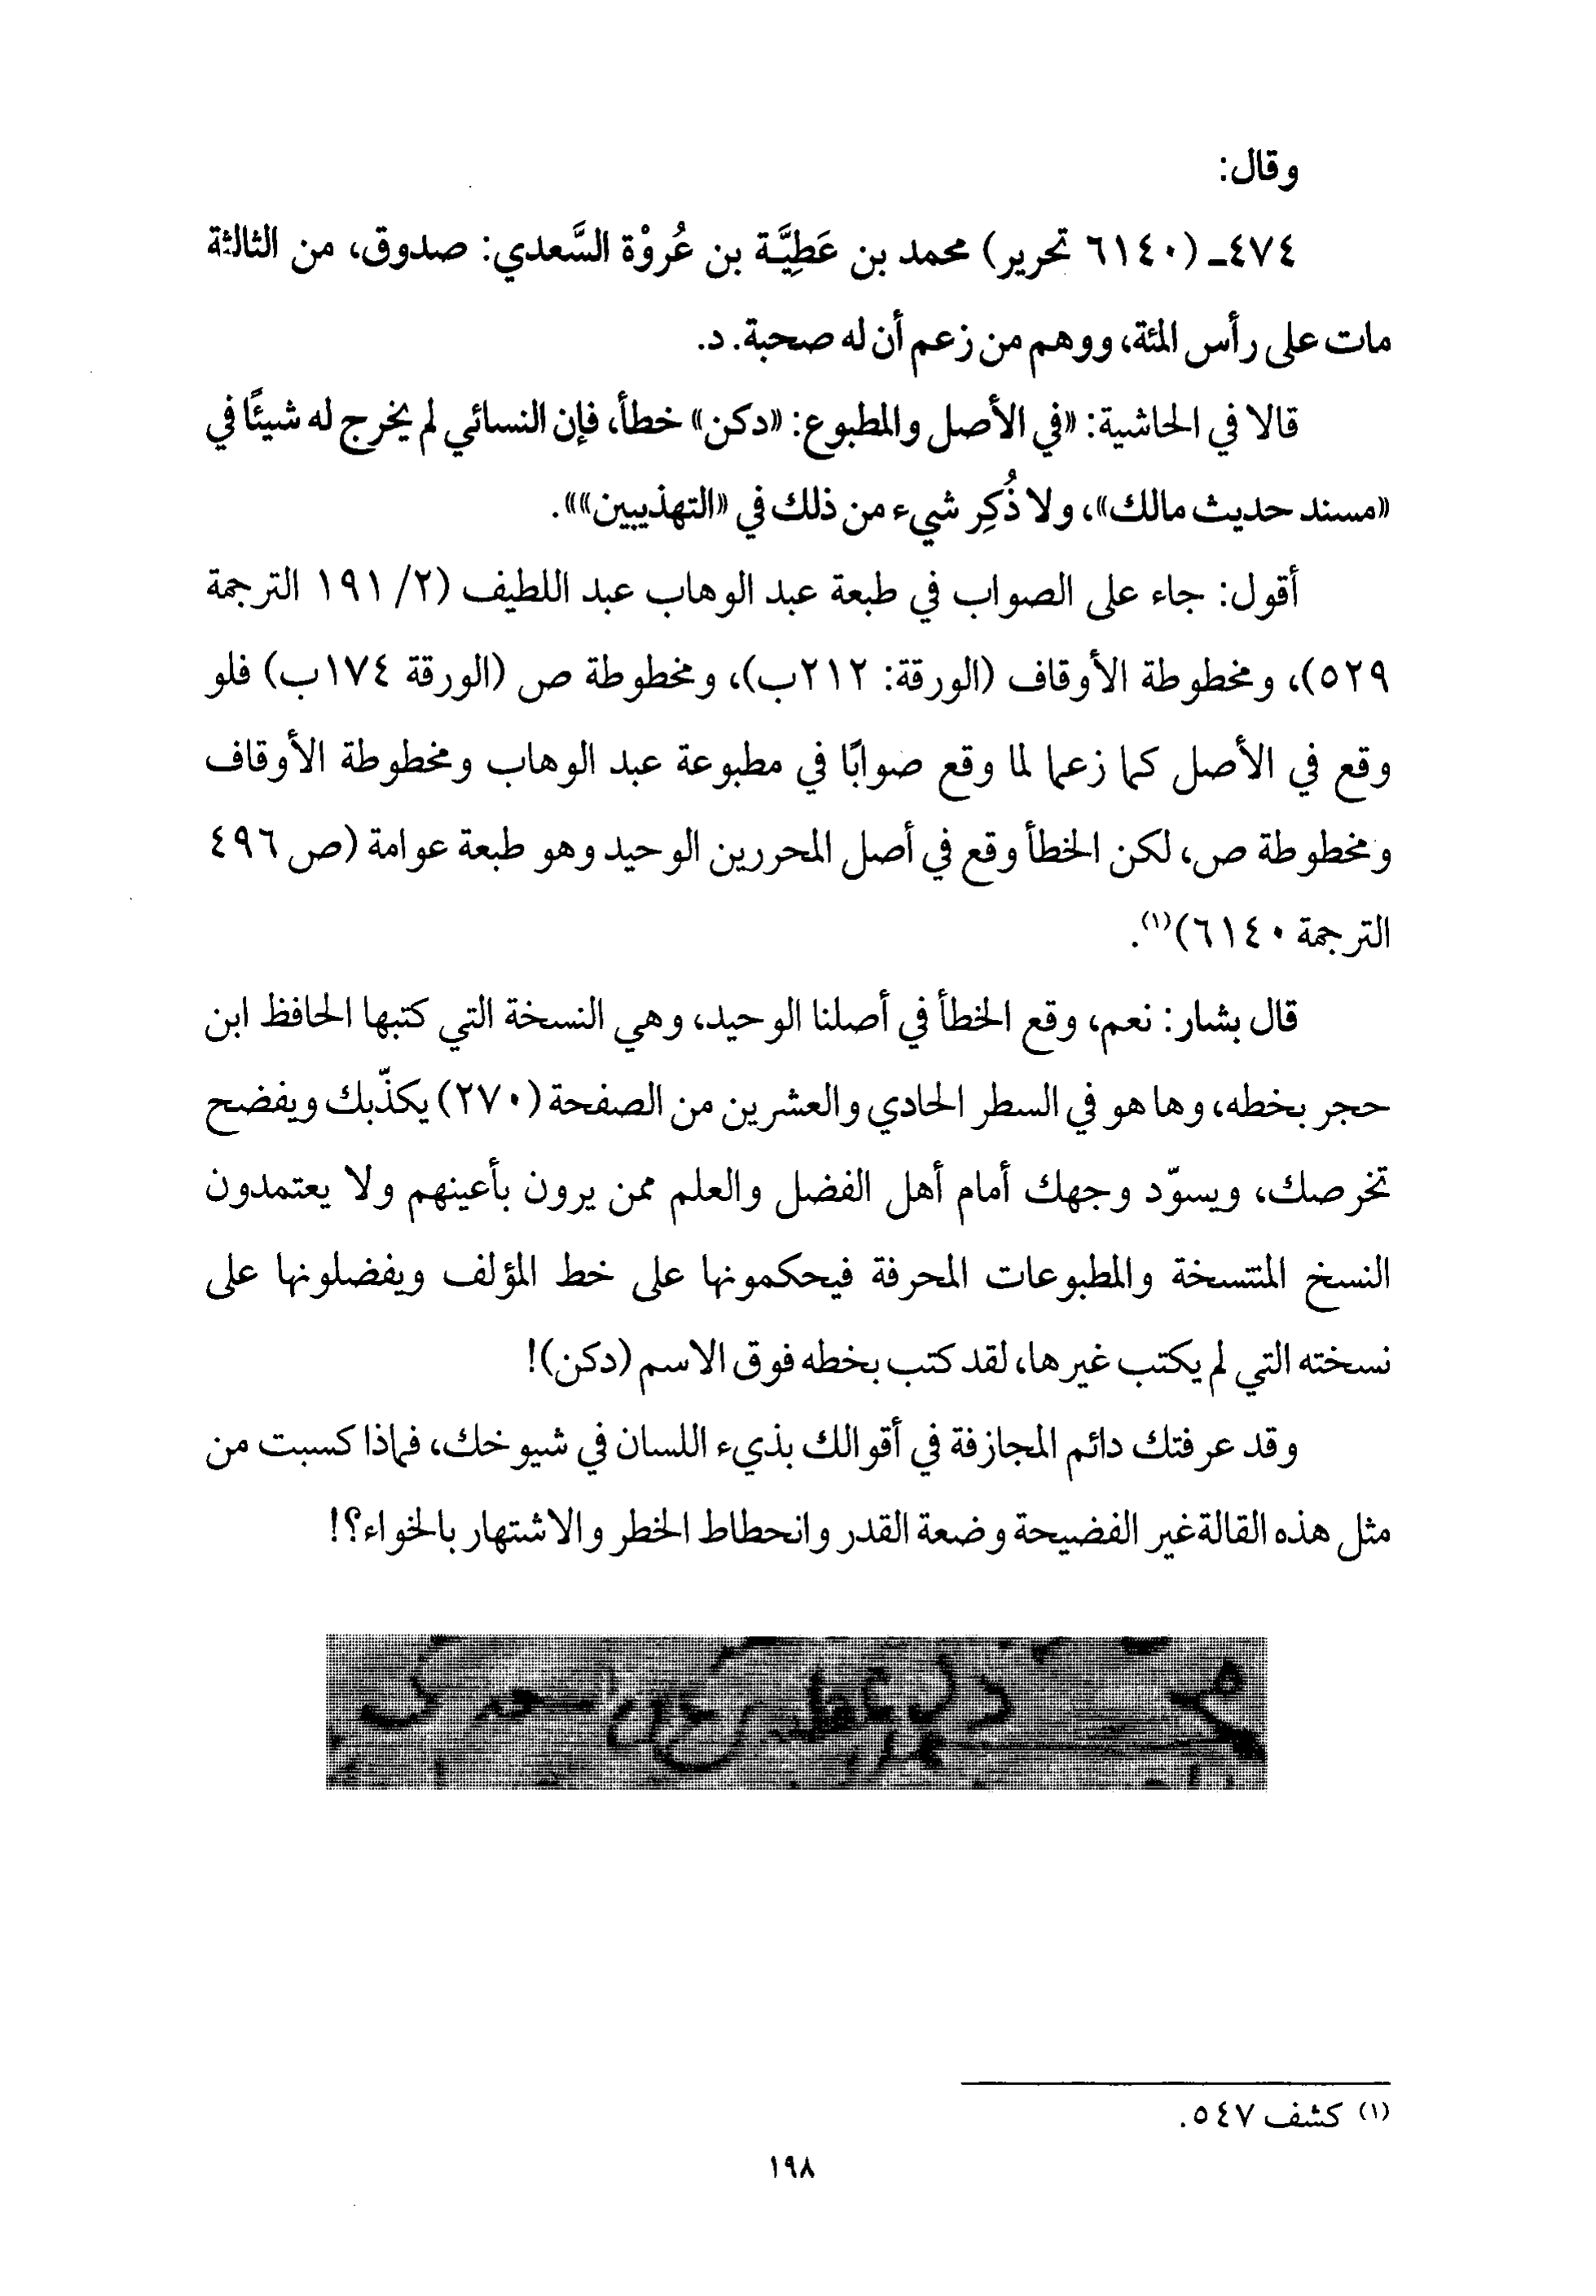 وقال:
٤٧٤ـ (٦١٤٠ تحرير) محمد بن عَطِيَّة بن عُروْة السَّعدي: صدوق، من الثالثة
مات على رأس المئة، ووهم من زعم أن له صحبة. د.
قالا في الحاشية: «في الأصل والمطبوع: «دكن» خطأ، فإن النسائي لم يخرج له شيئًا في
«مسند حديث مالك»، ولا ذُكِر شيء من ذلك في «التهذيبين»».
أقول: جاء على الصواب في طبعة عبد الوهاب عبد اللطيف (٢/ ١٩١ الترجمة
٥٢٩)، ومخطوطة الأوقاف (الورقة: ٢١٢ب)، ومخطوطة ص (الورقة ١٧٤ب) فلو
وقع في الأصل كما زعما لما وقع صوابًا في مطبوعة عبد الوهاب ومخطوطة الأوقاف
ومخطوطة ص، لكن الخطأ وقع في أصل المحررين الوحيد وهو طبعة عوامة (ص ٤٩٦
الترجمة ٦١٤٠)(١).
قال بشار: نعم، وقع الخطأ في أصلنا الوحيد، وهي النسخة التي كتبها الحافظ ابن
حجر بخطه، وها هو في السطر الحادي والعشرين من الصفحة (٢٧٠) يكذّبك ويفضح
تخرصك، ويسوّد وجهك أمام أهل الفضل والعلم ممن يرون بأعينهم ولا يعتمدون
النسخ المنتسخة والمطبوعات المحرفة فيحكمونها على خط المؤلف ويفضلونها على
نسخته التي لم يكتب غيرها، لقد كتب بخطه فوق الاسم (دكن)!
وقد عرفتك دائم المجازفة في أقوالك بذيء اللسان في شيوخك، فماذا كسبت من
مثل هذه القالة غير الفضيحة وضعة القدر وانحطاط الخطر والاشتهار بالخواء؟!
(١) كشف ٥٤٧.
١٩٨